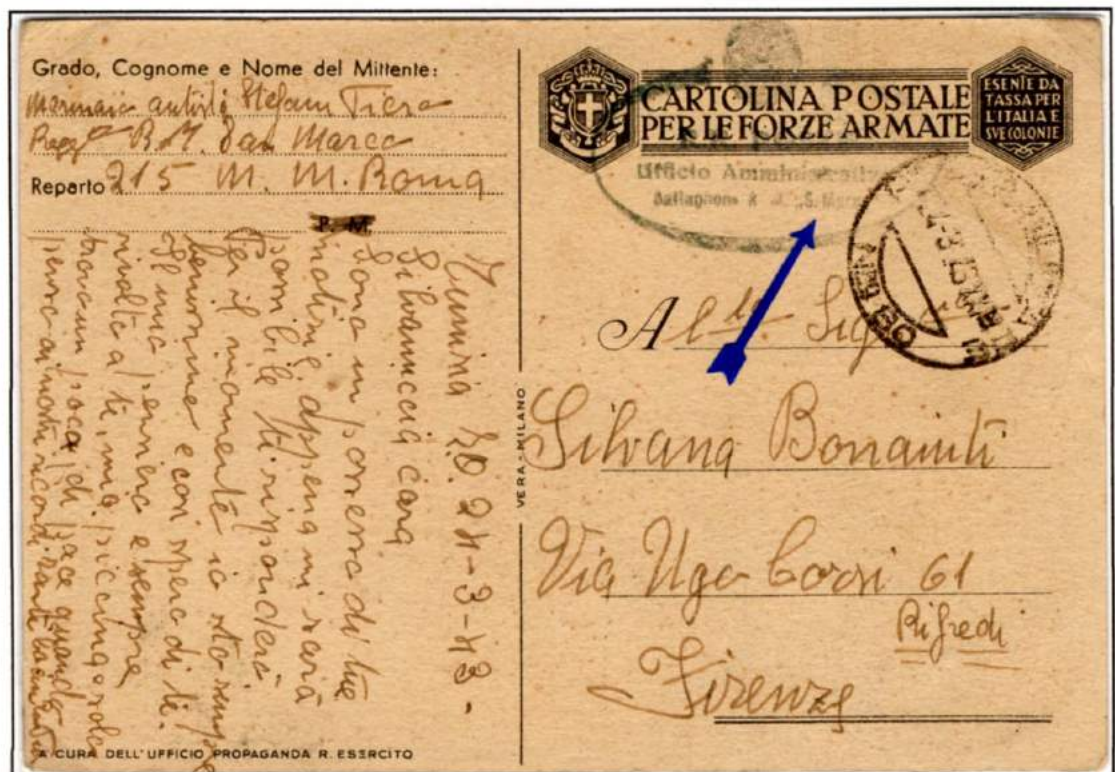 Grado, Cognome e Nome del Mittente:
Marinaio autista Stefani Piero
Regg° R.M. San Marco
Reparto 215 M. M. Roma
P. M.
Tunisia Z.O. 24-3-43.
Silvanuccia cara
Sono in possesso di tue
appena mi sarà
possibile ti risponderò
Per il momento io sto sempre
benone e con spero di te.
Il mio pensiero è sempre
rivolto a te, mia piccina, solo
trovo un poco di pace quando
penso ai nostri ricordi
A CURA DELL'UFFICIO PROPAGANDA R. ESERCITO
VERA - MILANO
CARTOLINA POSTALE
PER LE FORZE ARMATE
ESENTE DA
TASSA PER
L'ITALIA E
SUE COLONIE
Ufficio Amministrativo
Battaglione R. M. "S. Marco
A
Silvana Bonaiuti
Via Ugo Corsi 61
Rifredi
Firenze